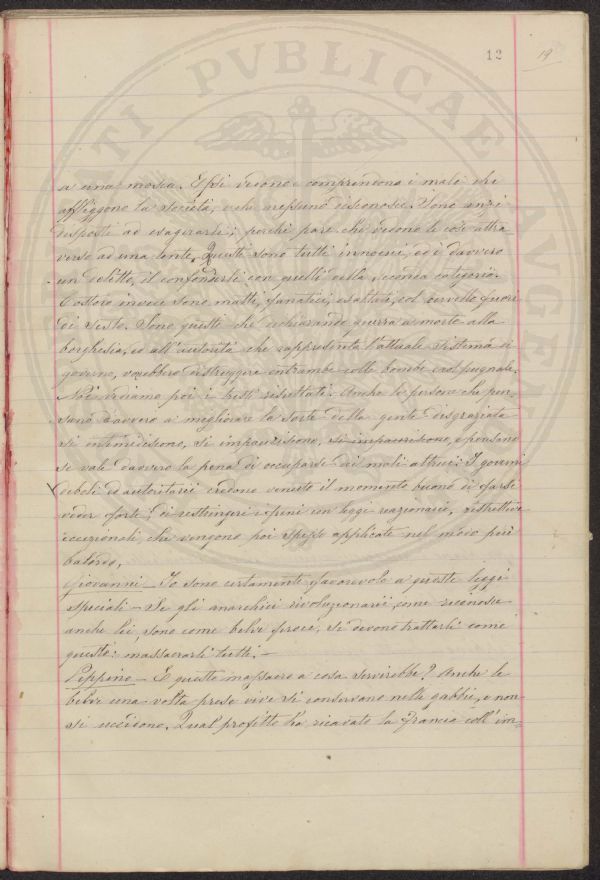 12 19
a una mosca. Essi vedono e comprendono i mali che
affliggono la società, e che nessuno disconosce. Sono anzi
disposti ad esagerarli; perchè pare che vedono le cose attra
verso ad una lente. Questi sono tutti innocui, ed è davvero
un delitto, il confonderli con quelli della seconda categoria.
Costoro invece sono matti, fanatici, esaltati, col cervello fuori
di sesto. Sono questi che dichiarando guerra a morte alla
borghesia, ed all'autorità che rappresenta l'attuale sistema di
governo, vorebbero distruggere entrambe colle bombe e col pugnale.
Noi vediamo poi i tristi risultati. Anche le persone che pen-
sano davvero a migliorare la sorte della gente disgraziata
si intimidiscono, si impauriscono, e pensano
se vale davvero la pena di occuparsi dei mali altrui: I governi
deboli ed autoritarii credono venuto il momento buono di farsi
veder forti; di restringere i freni con leggi reazionarie, restrittive
eccezionali, che vengono poi spesso applicate nel modo più
balordo.
Giovanni - Io sono certamente favorevole a queste leggi
speciali - Se gli anarchici rivoluzionarii, come riconosce
anche lei, sono come belve feroci, si devono trattarli come
queste: massacrarli tutti. -
Peppino - E questo massacro a cosa servirebbe? Anche le
belve una volta prese vive si conservano nelle gabbie, e non
si uccidono. Qual profitto ha ricavato la Francia coll'im=
PVBLICAE